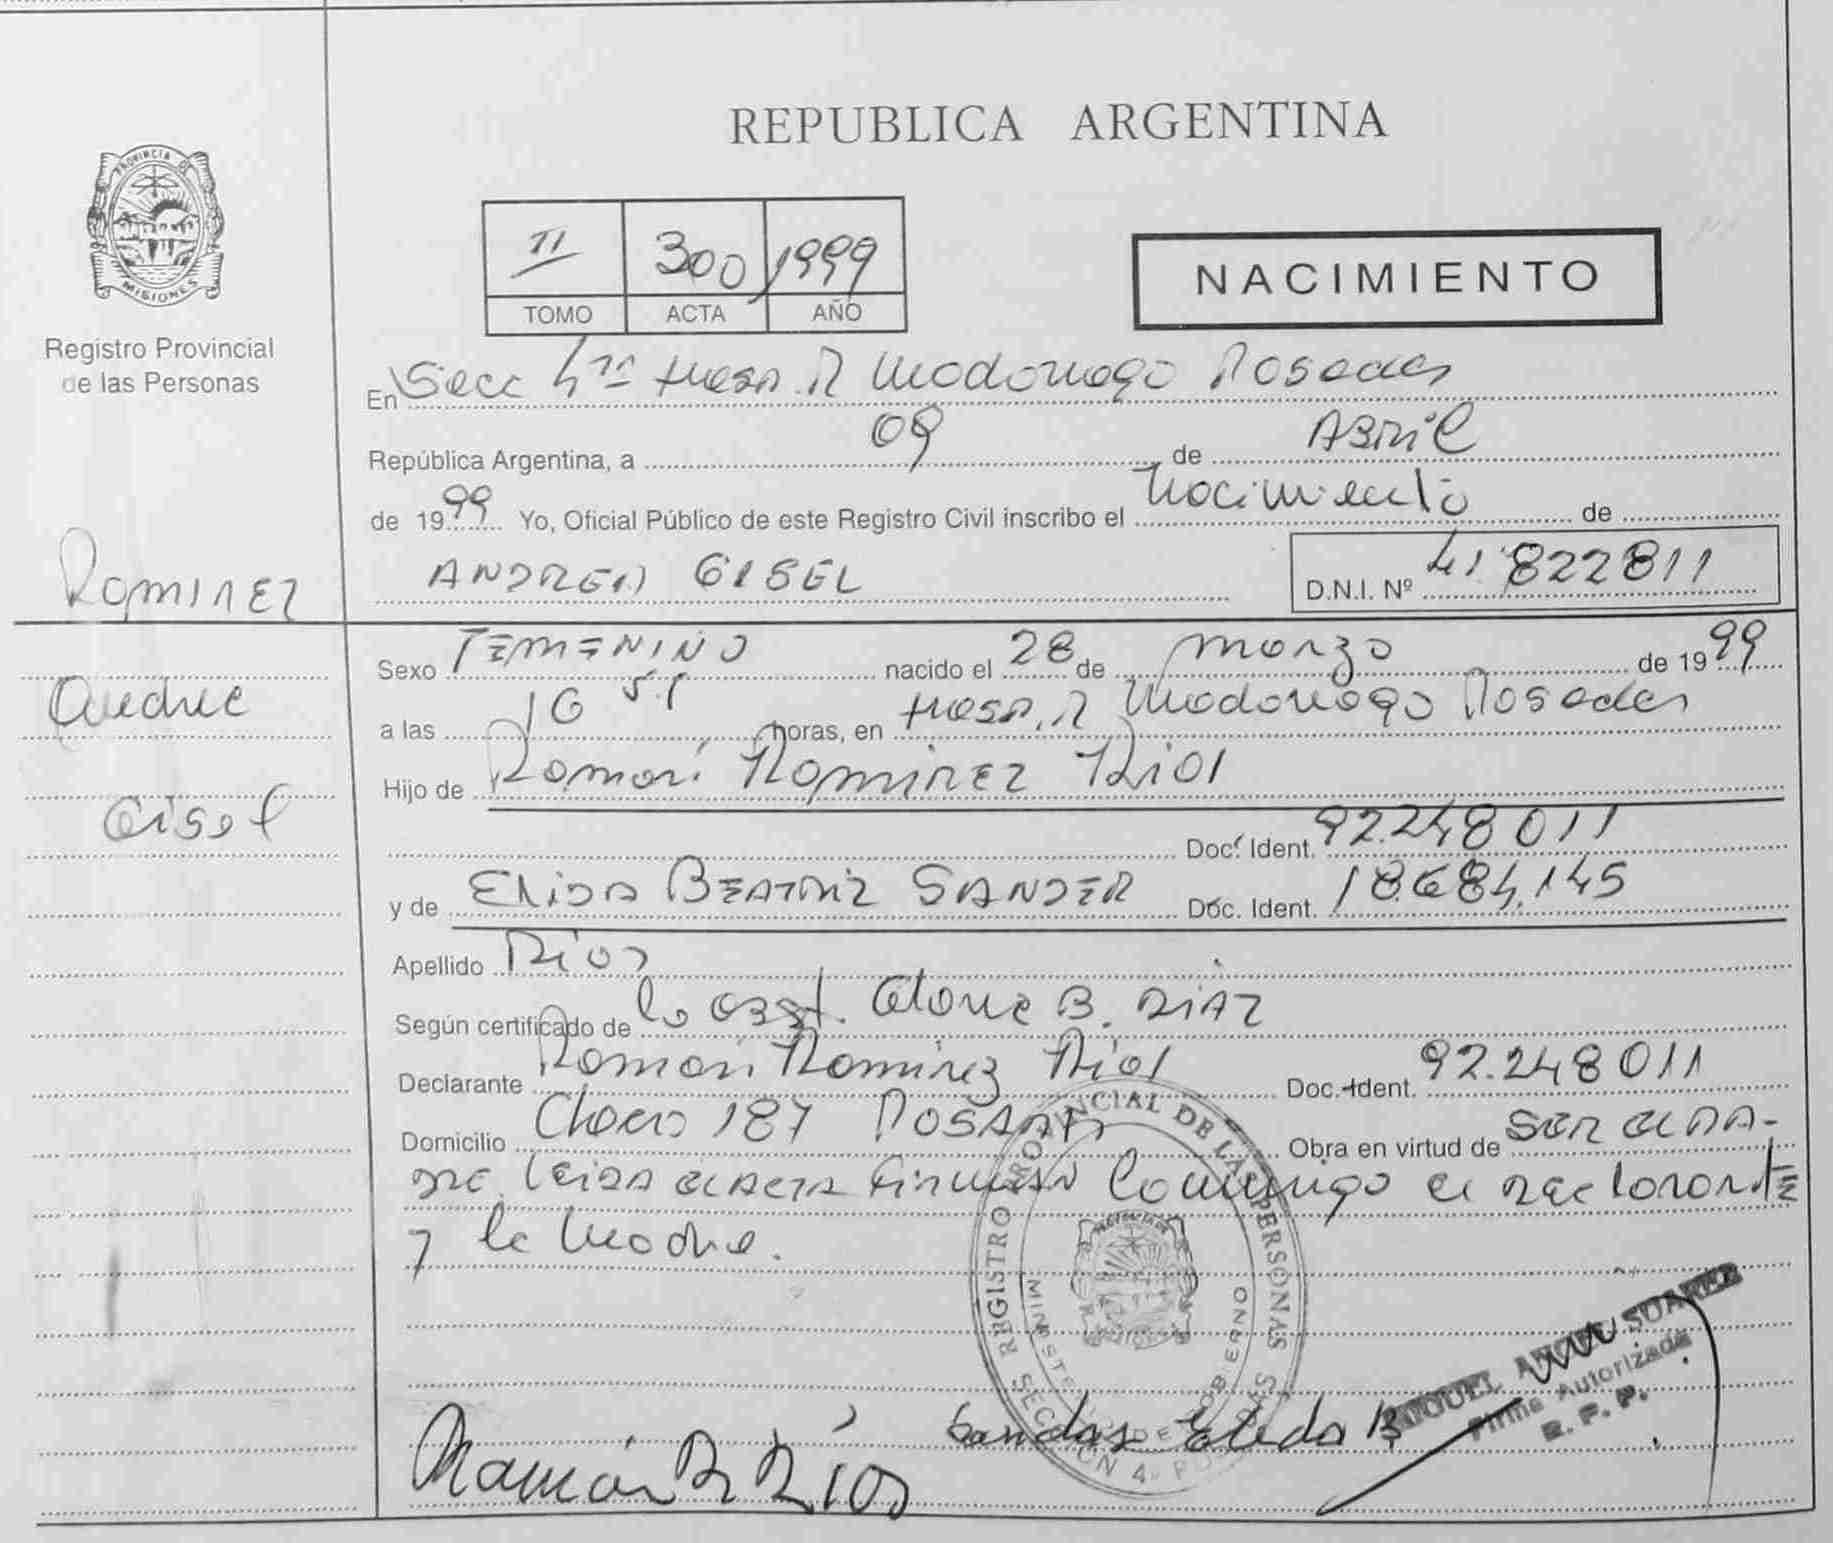 PROVINCIA DE
MISIONES
Registro Provincial
de las Personas
Ramirez
Andrea
Gisel
REPUBLICA ARGENTINA
II 300 1999
TOMO ACTA AÑO
NACIMIENTO
En Secc 4ta Hosp. R Madariaga Posadas
República Argentina, a 09 de Abril
de 1999 Yo, Oficial Público de este Registro Civil inscribo el Nacimiento de
ANDREA GISEL D.N.I. Nº 41.822811
Sexo FEMENINO nacido el 28 de marzo de 1999
a las 16 51 horas, en Hosp. R Madariaga Posadas
Hijo de Ramón Ramirez Rios
Doc. Ident. 92.248011
y de ELIDA BEATRIZ SANDER Doc. Ident. 18.684.145
Apellido Rios
Según certificado de la Obst. B. DIAZ
Declarante Ramón Ramirez Rios Doc. Ident. 92.248011
Domicilio Chaco 187 POSADAS Obra en virtud de SER EL PA-
DRE. Leida el acta firman conmigo el declarante
y la madre.
REGISTRO PROVINCIAL DE LAS PERSONAS
MINISTERIO DE GOBIERNO
SECCION 4a POSADAS
MIGUEL ANGEL SUAREZ
Firma Autorizada
R. P. P.
Ramón R Ríos Elida B